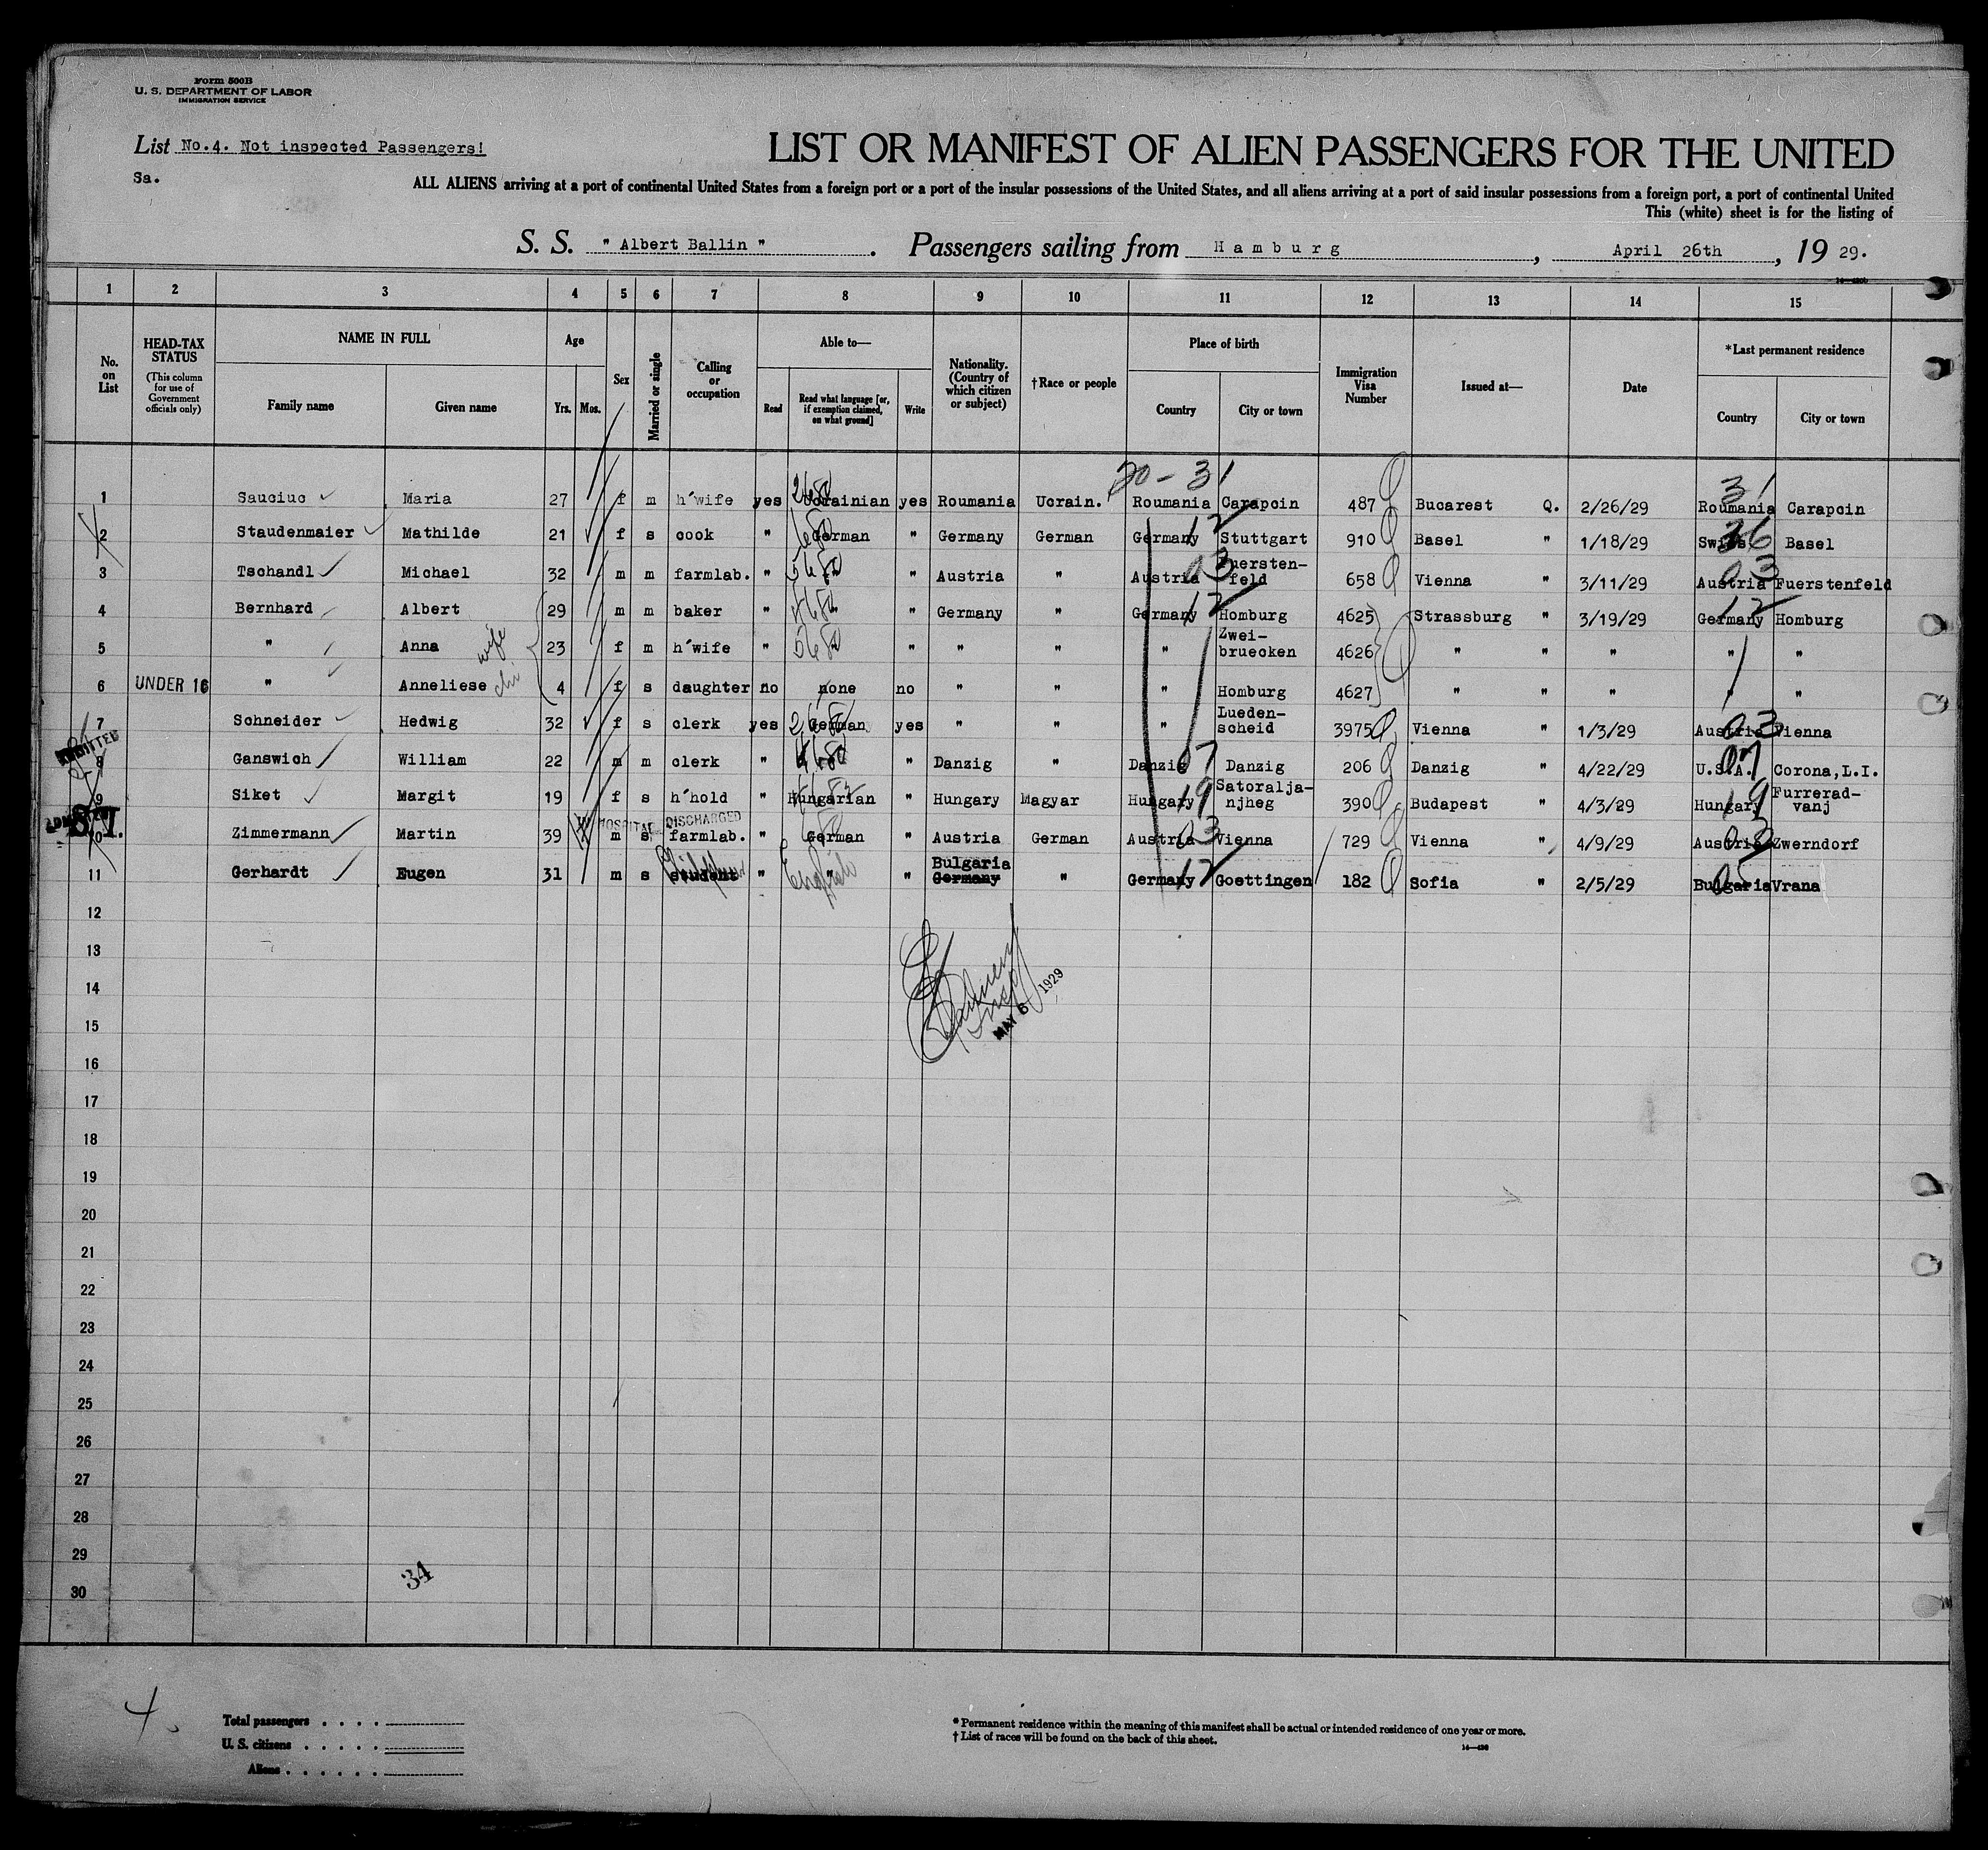 Form 500B
U. S. DEPARTMENT OF LABOR
IMMIGRATION SERVICE
List No.4. Not inspected Passengers!
Sa.
LIST OR MANIFEST OF ALIEN PASSENGERS FOR THE UNITED
ALL ALIENS arriving at a port of continental United States from a foreign port or a port of the insular possessions of the United States, and all aliens arriving at a port of said insular possessions from a foreign port, a port of continental United
This (white) sheet is for the listing of
S. S. " Albert Ballin " . Passengers sailing from Hamburg , April 26th , 19 29.
1 2 3 4 5 6 7 8 9 10 11 12 13 14 15
No. on List
HEAD-TAX STATUS
(This column for use of Government officials only)
NAME IN FULL
Family name
Given name
Age
Yrs. Mos.
Sex
Married or single
Calling or occupation
Able to—
Read
Read what language [or, if exemption claimed, on what ground]
Write
Nationality. (Country of which citizen or subject)
†Race or people
Place of birth
Country
City or town
Immigration Visa Number
Issued at—
Date
*Last permanent residence
Country
City or town
20 - 31
31
1 Sauciuc Maria 27 f m h'wife yes Ucrainian yes Roumania Ucrain. Roumania Carapcin 487 Bucarest Q. 2/26/29 Roumania Carapcin
2 Staudenmaier Mathilde 21 f s cook " German " Germany German Germany 12 Stuttgart 910 Basel " 1/18/29 Swiss 36 Basel
3 Tschandl Michael 32 m m farmlab. " " Austria " Austria 03 Fuersten-feld 658 Vienna " 3/11/29 Austria 03 Fuerstenfeld
4 Bernhard Albert 29 m m baker " " Germany " Germany 12 Homburg 4625 Strassburg " 3/19/29 Germany 12 Homburg
5 " Anna wife 23 f m h'wife " " " " " Zwei-bruecken 4626 " " " " "
6 UNDER 16 " Anneliese chi 4 f s daughter no none no " " " Homburg 4627 " " " " "
7 Schneider Hedwig 32 f s clerk yes German yes " " " Lueden-scheid 3975 Vienna " 1/3/29 Austria 03 Vienna
ADMITTED
8 Ganswich William 22 m m clerk " " Danzig " Danzig 07 Danzig 206 Danzig " 4/22/29 U.S.A. 07 Corona,L.I.
9 Siket Margit 19 f s h'hold " Hungarian " Hungary Magyar Hungary 19 Satoralja-njheg 390 Budapest " 4/3/29 Hungary 19 Furrerad-vanj
ADMITTED
S.I.
HOSPITAL DISCHARGED
10 Zimmermann Martin 39 m s farmlab. " German " Austria German Austria 03 Vienna 729 Vienna " 4/9/29 Austria 03 Zwerndorf
11 Gerhardt Eugen 31 m s student " " English " Bulgaria Germany " Germany 12 Goettingen 182 Sofia " 2/5/29 Bulgaria 05 Vrana
12
13
14
MAY 6 1929
15
16
17
18
19
20
21
22
23
24
25
26
27
28
29
34
30
4.
Total passengers . . . .
U. S. citizens . . . . .
Aliens . . . . . .
* Permanent residence within the meaning of this manifest shall be actual or intended residence of one year or more.
† List of races will be found on the back of this sheet.